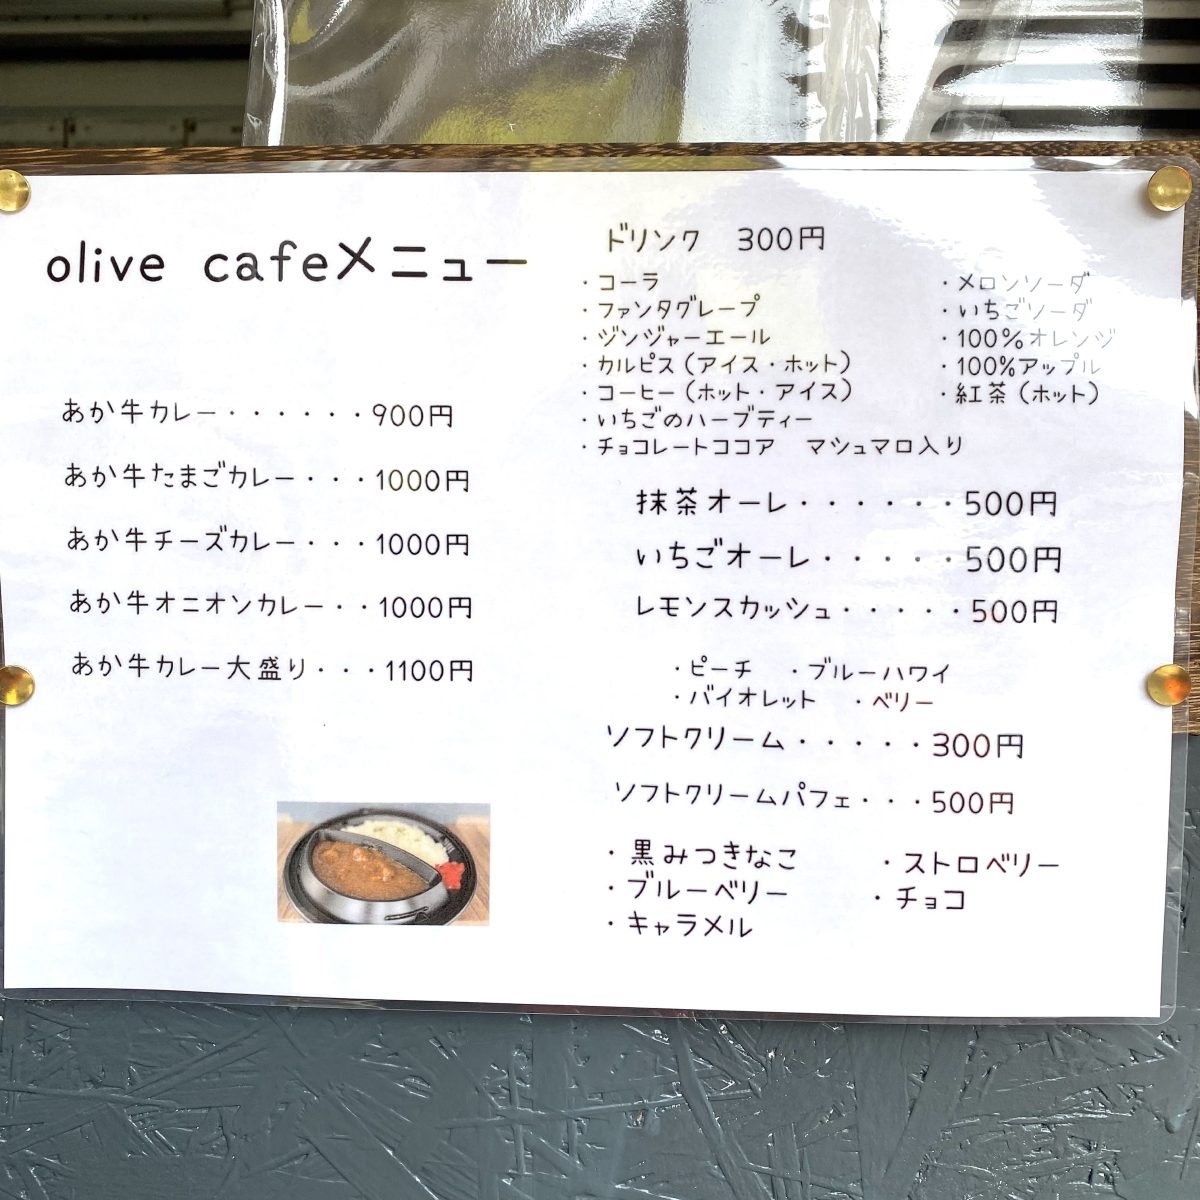 olive cafeメニュー
あか牛カレー・・・・・・900円
あか牛たまごカレー・・・1000円
あか牛チーズカレー・・・1000円
あか牛オニオンカレー・・1000円
あか牛カレー大盛り・・・1100円
ドリンク　300円
・コーラ
・ファンタグレープ
・ジンジャーエール
・カルピス（アイス・ホット）
・コーヒー（ホット・アイス）
・いちごのハーブティー
・チョコレートココア　マシュマロ入り
・メロンソーダ
・いちごソーダ
・100%オレンジ
・100%アップル
・紅茶（ホット）
抹茶オーレ・・・・・・500円
いちごオーレ・・・・・500円
レモンスカッシュ・・・・・500円
・ピーチ　・ブルーハワイ
・バイオレット　・ベリー
ソフトクリーム・・・・・300円
ソフトクリームパフェ・・・500円
・黒みつきなこ　・ストロベリー
・ブルーベリー　・チョコ
・キャラメル